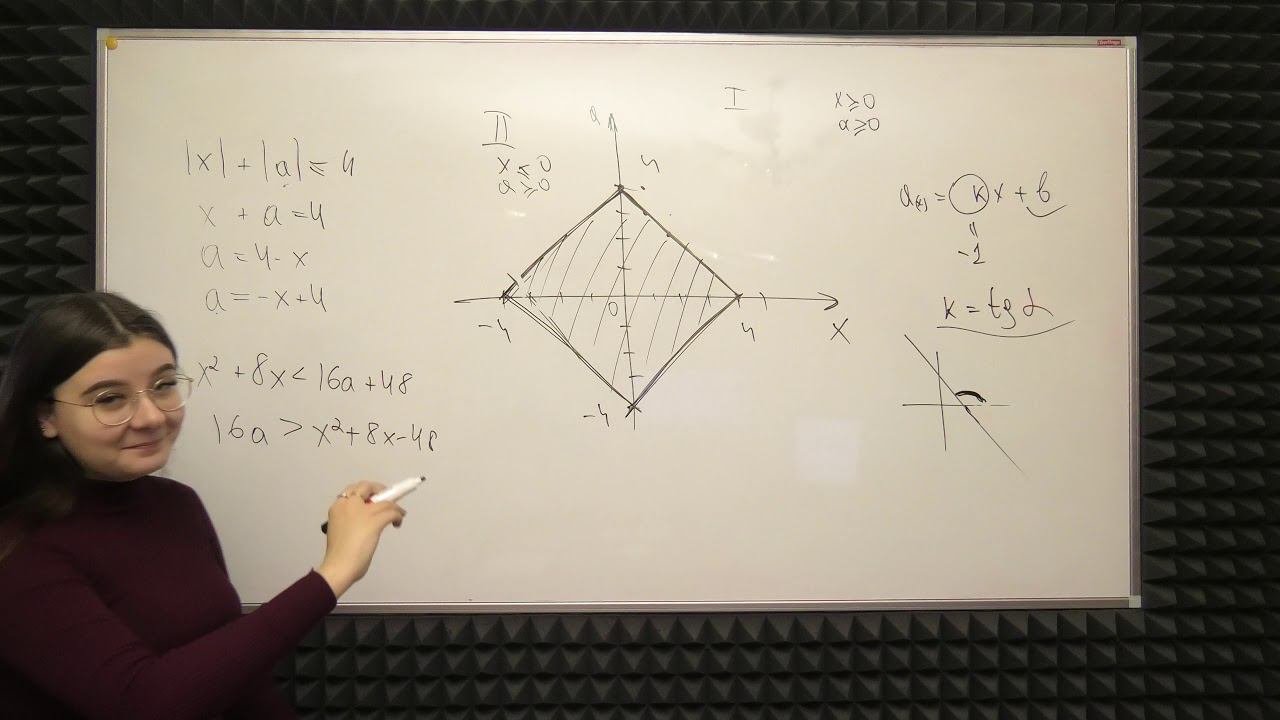 |x| + |a| ≤ 4
x + a = 4
a = 4 - x
a = -x + 4
x² + 8x < 16a + 48
16a > x² + 8x - 48
II
x ≤ 0
a ≥ 0
a
4
-4
0
4
x
-4
I
x ≥ 0
a ≥ 0
a(x) = kx + b
=
-1
k = tg α